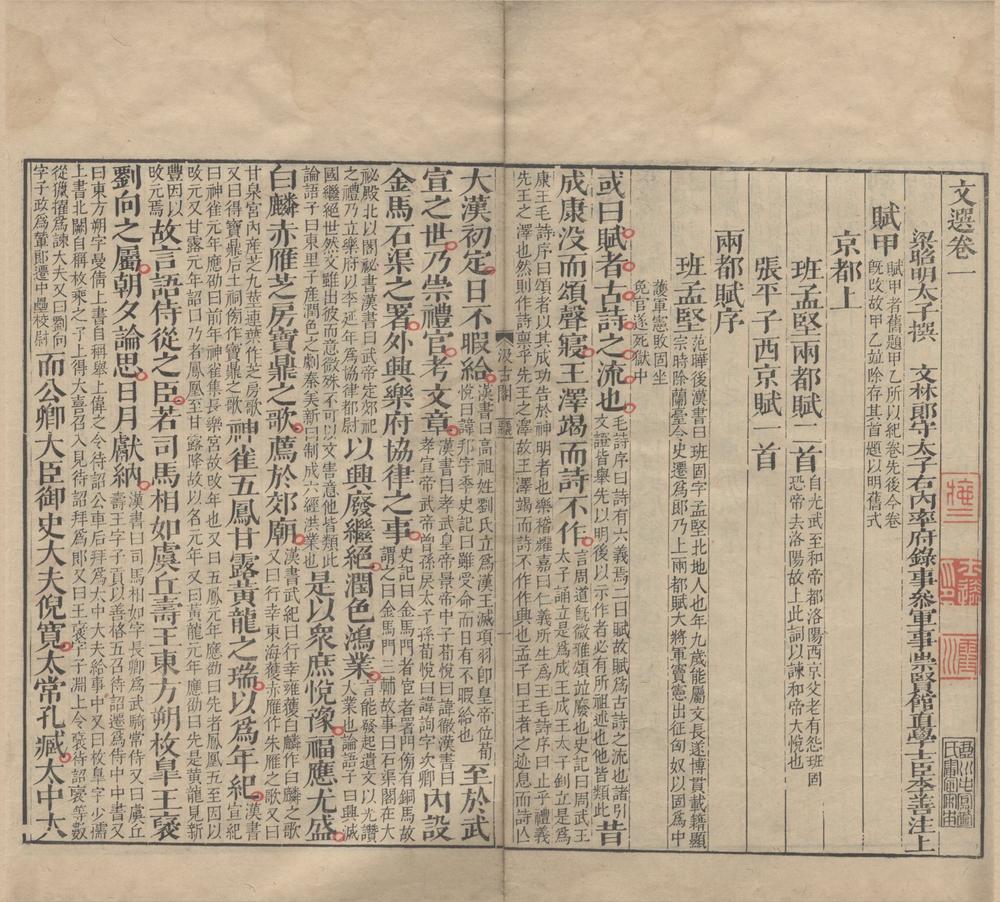 文選卷一
梁昭明太子撰　文林郎守太子右內率府錄事參軍事崇賢館直學士臣李善注上
賦甲
賦甲者舊題甲乙所以紀卷先後今卷
旣改故甲乙並除存其首題以明舊式
京都上
班孟堅兩都賦二首
自光武至和帝都洛陽西京父老有怨班固
恐帝去洛陽故上此詞以諫和帝大悅也
張平子西京賦一首
兩都賦序
班孟堅
范曄後漢書曰班固字孟堅北地人也年九歲能屬文長遂博貫載籍顯
宗時除蘭臺令史遷爲郎乃上兩都賦大將軍竇憲出征匈奴以固爲中
護軍憲敗固坐
免官遂死獄中
或曰賦者古詩之流也
毛詩序曰詩有六義焉二曰賦故賦爲古詩之流也諸引
文證皆舉先以明後以示作者必有所祖述也他皆類此
昔
成康没而頌聲寢王澤竭而詩不作
言周道旣微雅頌並廢也史記曰周武王
太子誦立是爲成王成王太子釗立是爲
康王毛詩序曰頌者以其成功告於神明者也樂稽耀嘉曰仁義所生爲王毛詩序曰止乎禮義
先王之澤也然則作詩稟乎先王之澤故王澤竭而詩不作作興也孟子曰王者之迹息而詩亡
汲古閣
大漢初定日不暇給
漢書曰高祖姓劉氏立爲漢王滅項羽卽皇帝位荀
悅曰諱邦字季史記曰雖受命而日有不暇給也
至於武
宣之世乃崇禮官考文章
漢書曰孝武皇帝景帝中子荀悅曰諱徹漢書曰
孝宣帝武帝曾孫戾太子孫荀悅曰諱詢字次卿
內設
金馬石渠之署外興樂府協律之事
史記曰金馬門者宦者署門傍有銅馬故
謂之曰金馬門三輔故事曰石渠閣在大
祕殿北以閣祕書漢書曰武帝定郊祀
之禮乃立樂府以李延年爲協律都尉
以興廢繼絕潤色鴻業
言能發起遺文以光讚
大業也論語子曰興滅
國繼絕世然文雖出彼而意微殊不可以文害意他皆類此
論語子曰東里子產潤色之劇秦美新曰制成六經洪業也
是以衆庶悅豫福應尤盛
白麟赤雁芝房寶鼎之歌薦於郊廟
漢書武紀曰行幸雍獲白麟作白麟之歌
又曰行幸東海獲赤雁作朱雁之歌又曰
甘泉宮內產芝九莖連葉作芝房歌
又曰得寶鼎后土祠傍作寶鼎之歌
神雀五鳳甘露黃龍之瑞以爲年紀
漢書
宣紀
曰神雀元年應劭曰前年神雀集長樂宮故改年也又曰五鳳元年應劭曰先者鳳凰五至因以
攺元又甘露元年詔曰乃者鳳凰至甘露降故以名元年又曰黃龍元年應劭曰先是黃龍見新
豐因以
攺元焉
故言語侍從之臣若司馬相如虞丘壽王東方朔枚皐王襃
劉向之屬朝夕論思日月獻納
漢書曰司馬相如字長卿爲武騎常侍又曰虞丘
壽王字子贛以善格五召待詔遷爲侍中中書又
曰東方朔字曼倩上書自稱舉上偉之令待詔公車后拜爲大中大夫給事中又曰枚皐字少孺
上書北闕自稱枚乘之子上得大喜召入見待詔拜爲郎又曰王襃字子淵上令襃待詔襃等數
從獵擢爲諫大夫又曰劉向
字子政爲輦郎遷中壘校尉
而公卿大臣御史大夫倪寬太常孔臧太中大